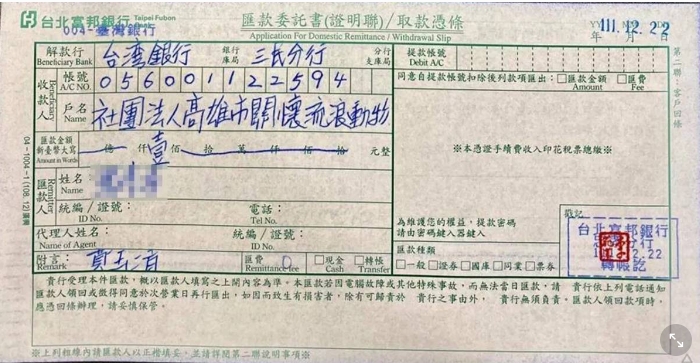 台北富邦銀行 Taipei Fubon Bank
匯款委託書(證明聯)/取款憑條
Application For Domestic Remittance / Withdrawal Slip
004-臺灣銀行
111.12.22
年 月 日
解款行 Beneficiary Bank 台灣銀行 銀行 庫局 三民分行 分行 支庫局
提款帳號 Debit A/C
收款人 Beneficiary
帳號 A/C NO. 056001122594
同意自提款帳號扣除後列款項匯出:□匯款金額 Amount □匯費 Fee
戶名 Name 社團法人高雄市關懷流浪動物
匯款金額 新臺幣大寫 Amount in Words 億 仟 壹 佰 拾 萬 仟 佰 拾 元整
※本憑證手續費收入印花稅票總繳※
匯款人 Remitter
姓名 Name
統編/證號: ID No.
電話: Tel No.
代理人姓名: Name of Agent
統編/證號: ID No.
為維護您的權益,提款密碼
請由密碼鍵入器鍵入
戳記
匯款種類
□一般 □證券 □國庫 □同業 □票券
台北富邦銀行
分行
12.22
轉帳訖
附言: Remark
匯費 Remittance fee 0
□現金 Cash □轉帳 Transfer
貴行受理本件匯款,概以匯款人填寫之上開內容為準。本匯款若因電腦故障或其他特殊事故,而無法當日匯款,請 貴行依上列電話通知
匯款人領回或徵得同意於次營業日再行匯出,如因而致生有損害者,除有可歸責於 貴行之事由外, 貴行無須負責。匯款人領回款項時,
應憑回條辦理,請妥慎保管。
※上列粗線內請匯款人以正楷填妥,並請詳閱第二聯說明事項※
第二聯:客戶回條
04-1004-1(108.12)